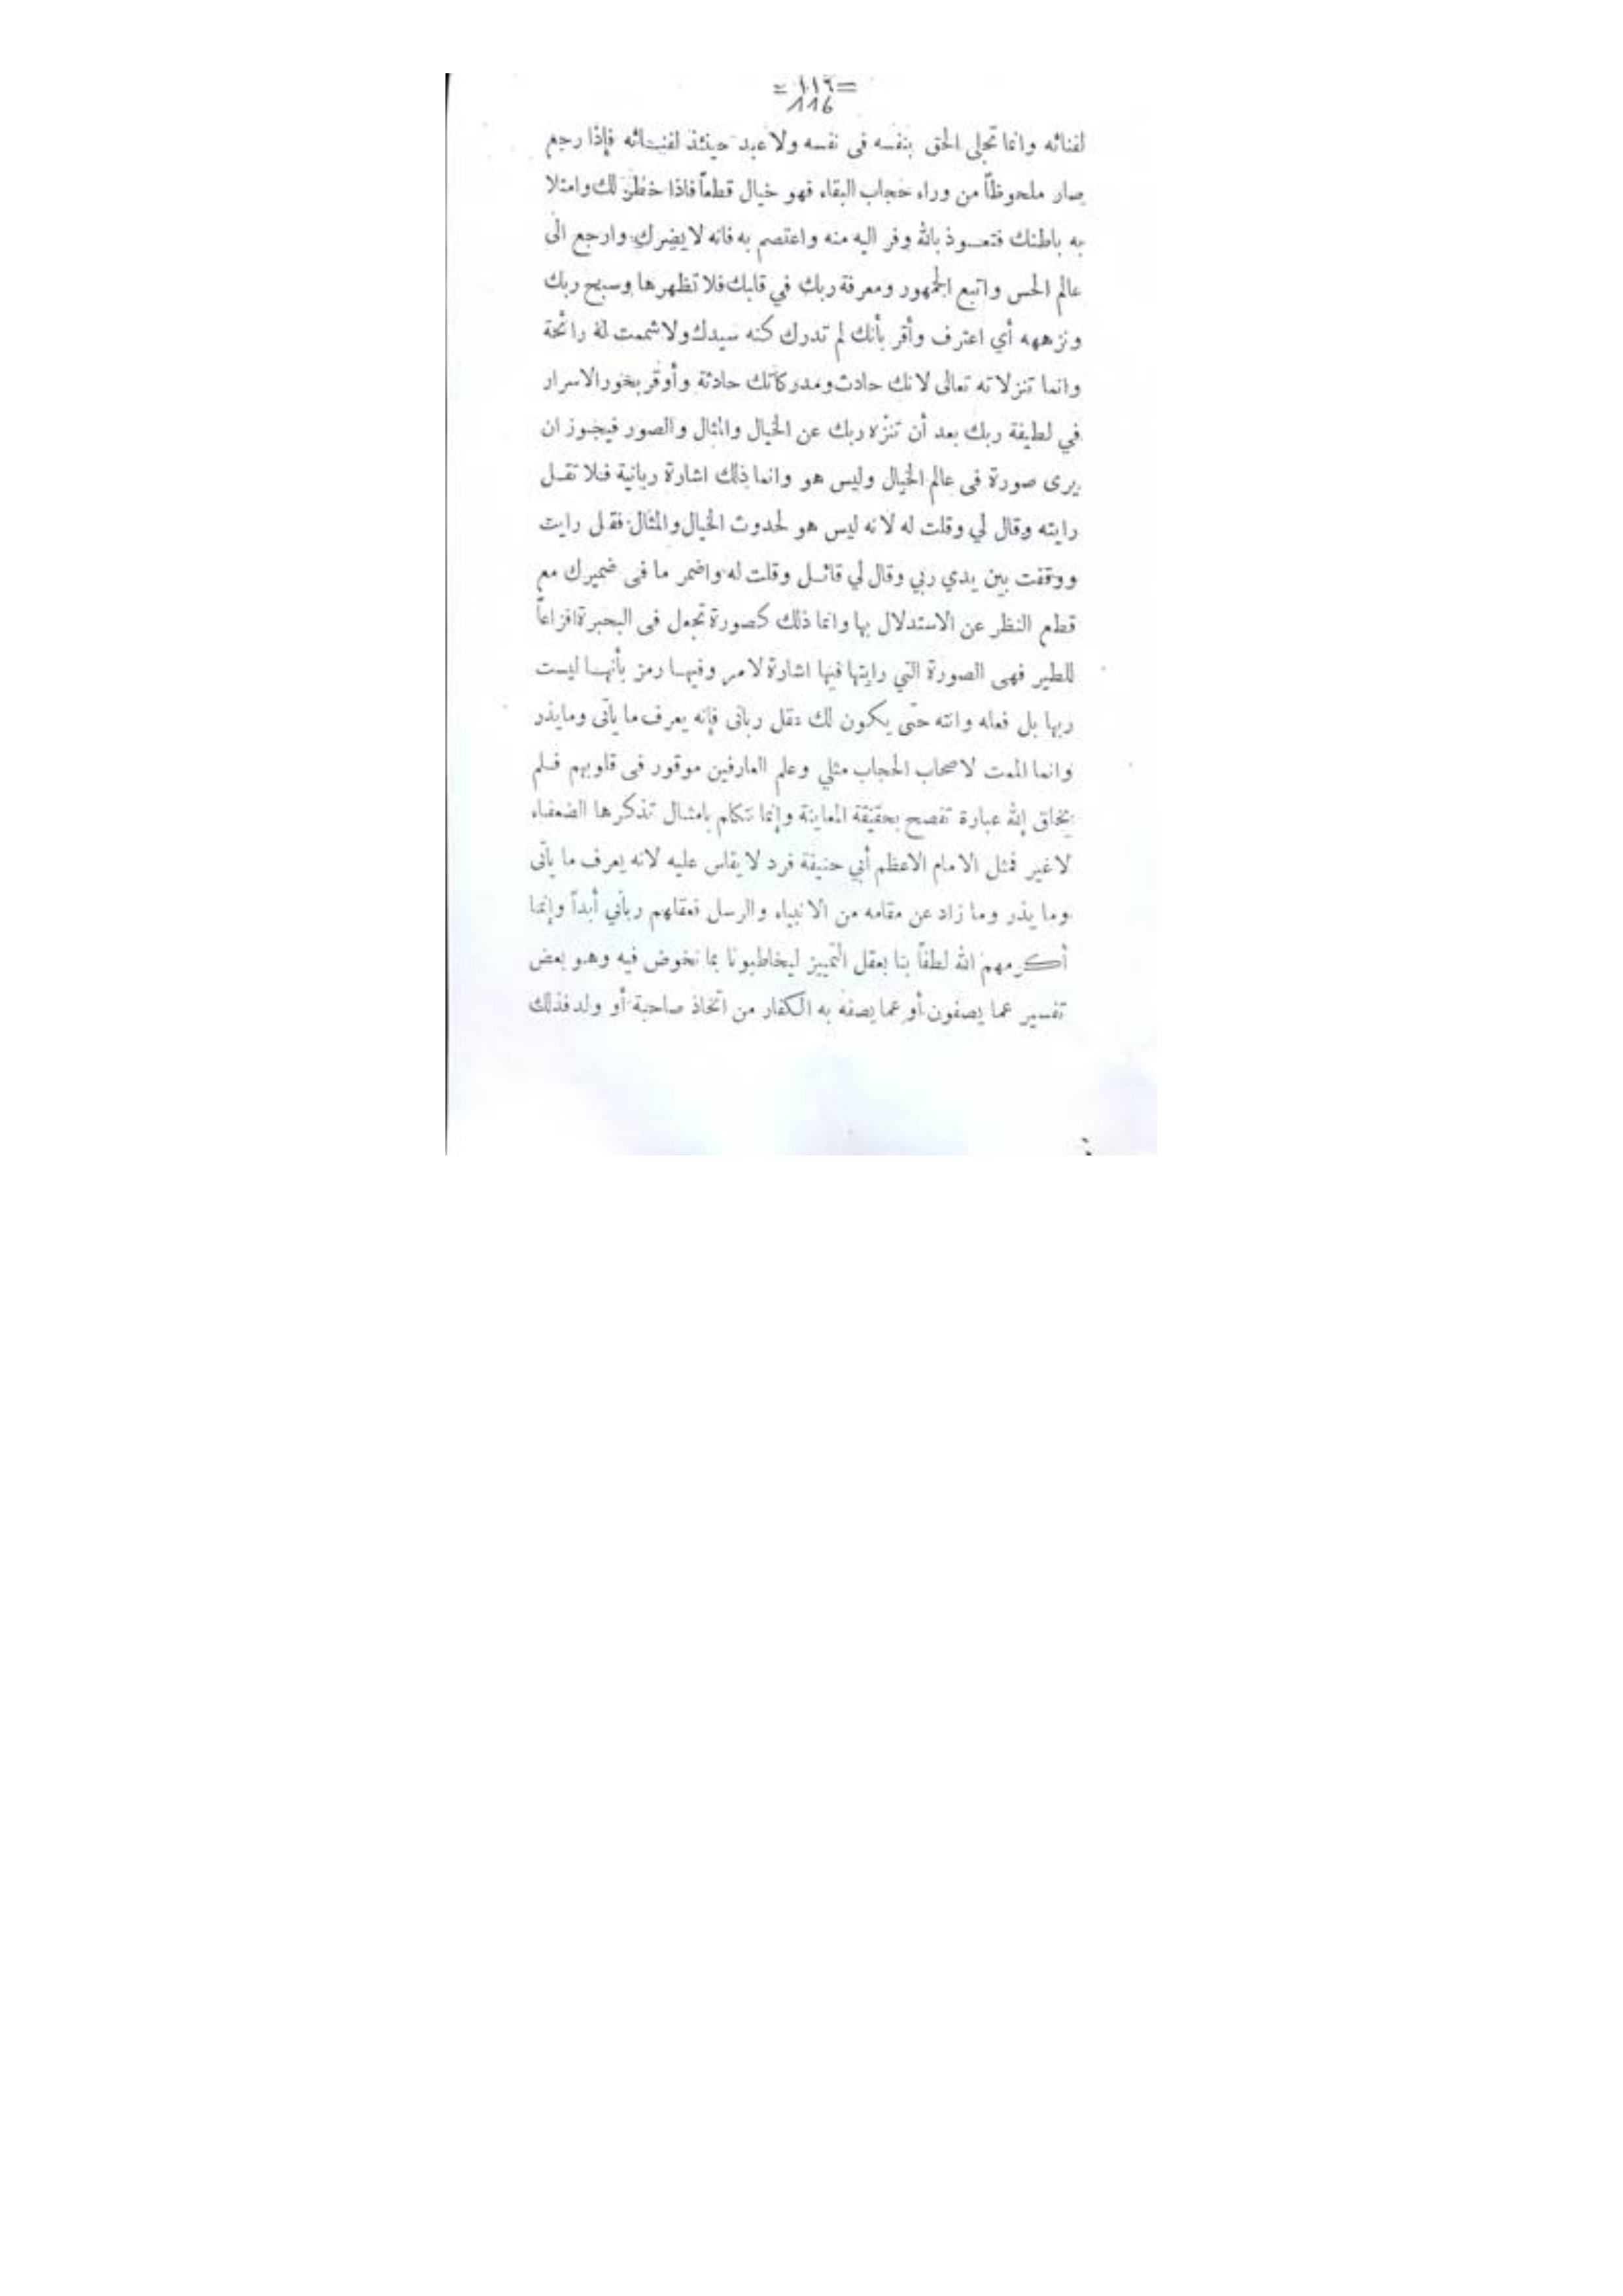 = ١١٦ =
116
لفنائه وانما تجلى الحق بنفسه فى نفسه ولا عبد حينئذ لفنائه فإذا رجع
صار ملحوظاً من وراء حجاب البقاء فهو خيال قطعاً فاذا خطر لك وامتلا
به باطنك فتعوذ بالله وفر اليه منه واعتصم به فانه لا يضرك وارجع الى
عالم الحس واتبع الجمهور ومعرفة ربك في قلبك فلا تظهرها وسبح ربك
ونزهه أي اعترف وأقر بأنك لم تدرك كنه سيدك ولا شممت له رائحة
وانما تنزلاته تعالى لانك حادث ومدركاتك حادثة وأوقر بخور الاسرار
في لطيفة ربك بعد أن تنزه ربك عن الخيال والمثال والصور فيجوز ان
يرى صورة فى عالم الخيال وليس هو وانما ذلك اشارة ربانية فلا تقل
رايته وقال لي وقلت له لانه ليس هو لحدوث الخيال والمثال فقل رايت
ووقفت بين يدي ربي وقال لي قائل وقلت له واضمر ما فى ضميرك مع
قطع النظر عن الاستدلال بها وانما ذلك كصورة تجعل فى البحيرة افزاعاً
للطير فهى الصورة التي رايتها فيها اشارة لامر وفيها رمز بأنها ليست
ربها بل فعله وانته حتى يكون لك عقل ربانى فإنه يعرف ما يأتى وما يذر
وانما المت لاصحاب الحجاب مثلي وعلم العارفين موقور فى قلوبهم فلم
يخلق الله عبارة تفصح بحقيقة المعاينة وإنما نتكلم بامثال تذكرها الضعفاء
لاغير فمثل الامام الاعظم أبي حنيفة فرد لا يقاس عليه لانه يعرف ما يأتى
وما يذر وما زاد عن مقامه من الانبياء والرسل فعقلهم رباني أبداً وإنما
أكرمهم الله لطفاً بنا بعقل التمييز ليخاطبونا بما نخوض فيه وهو بعض
تفسير عما يصفون أو عما يصفه به الكفار من اتخاذ صاحبة أو ولد فذلك